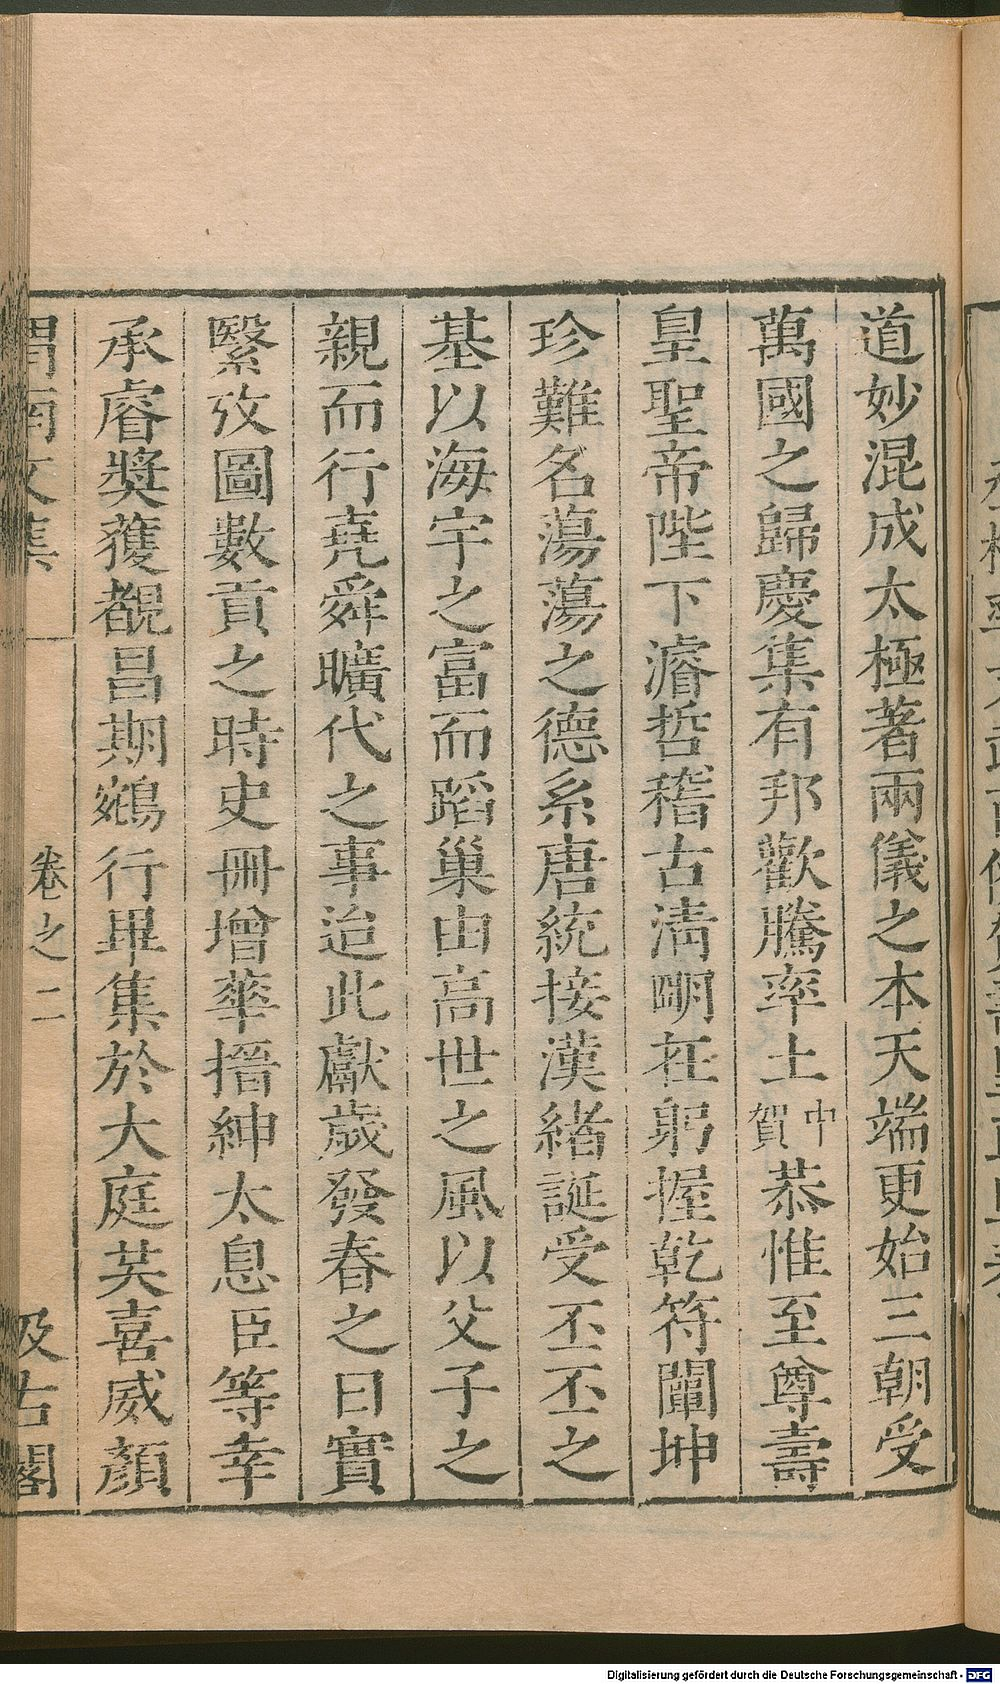 道妙混成太極著兩儀之本天端更始三朝受
萬國之歸慶集有邦歡騰率土中賀恭惟至尊壽
皇聖帝陛下濬哲稽古淸明在躬握乾符闡坤
珍難名蕩蕩之德系唐統接漢緒誕受丕丕之
基以海宇之富而蹈巢由高世之風以父子之
親而行堯舜曠代之事迨此獻歲發春之日實
繄攷圖數貢之時史冊增華搢紳太息臣等幸
承睿獎獲覩昌期鵷行畢集於大庭芺喜威顏
渭南文集 卷之二 汲古閣
Digitalisierung gefördert durch die Deutsche Forschungsgemeinschaft - DFG